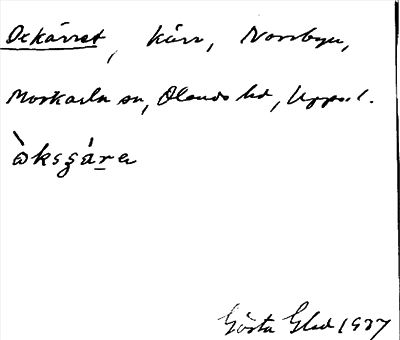 Oxkärret, kärr, Norrbyn,
Morkarla sn, Olands hd, Uppsl.
ὼksʒára
Gösta Glad 1937